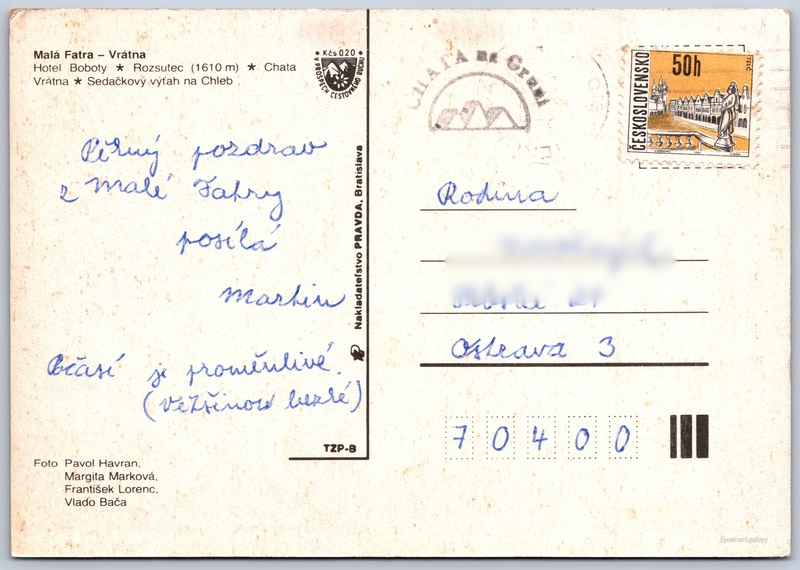 Malá Fatra – Vrátna
Hotel Boboty ★ Rozsutec (1610 m) ★ Chata
Vrátna ★ Sedačkový výťah na Chleb
Kčs 0.20
V PROSPECH CESTOVNÉHO RUCHU
CHATA na Gruni
ČESKOSLOVENSKO
50h
TELČ
Pěkný pozdrav
z Malé Fatry
posílá
Martin
Počasí je proměnlivé.
(většinou hezké)
Nakladateľstvo PRAVDA, Bratislava
TZP-B
Foto Pavol Havran,
Margita Marková,
František Lorenc,
Vlado Bača
Rodina
Ostrava 3
70400